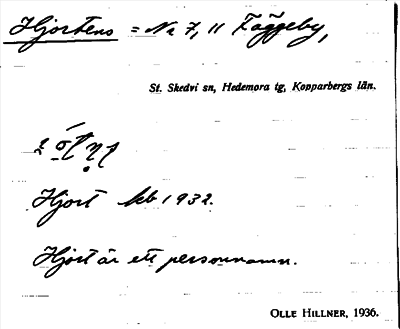 Hjortens = No 7, 11 Zäggeby,
St. Skedvi sn, Hedemora tg, Kopparbergs län.
Hjort kb 1932.
Hjort är ett personnamn.
OLLE HILLNER, 1936.